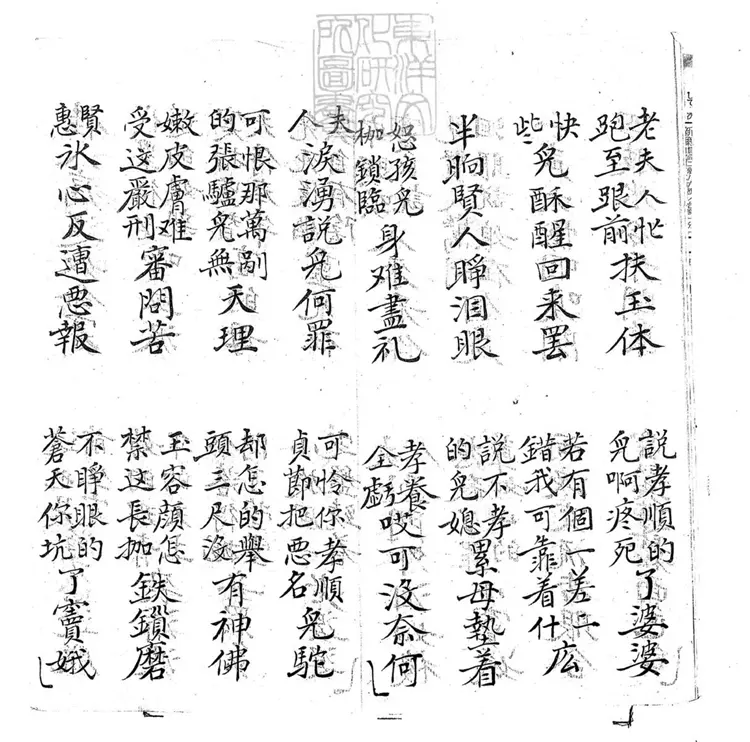 東洋文化研究所圖書
老夫人忙跑至跟前扶玉体
說孝順的兒啊疼死了婆婆
快些兒酥醒回来罢
若有個一差二錯我可靠着什広
半晌賢人睜泪眼
說不孝的兒媳累母埶着
恕孩兒枷鎖臨身难盡礼
孝養全虧哎可没奈何
夫人淚湧說兒何罪
可怜你孝順貞節把恶名兒駝
可恨那萬剮的張驢兒無天理
却怎的舉頭三尺没有神佛
嫩皮膚难受这嚴刑審問苦
玉容顔怎禁这長枷鉄鎖磨
賢惠氷心反遭恶報
不睜眼的蒼天你坑了竇娥